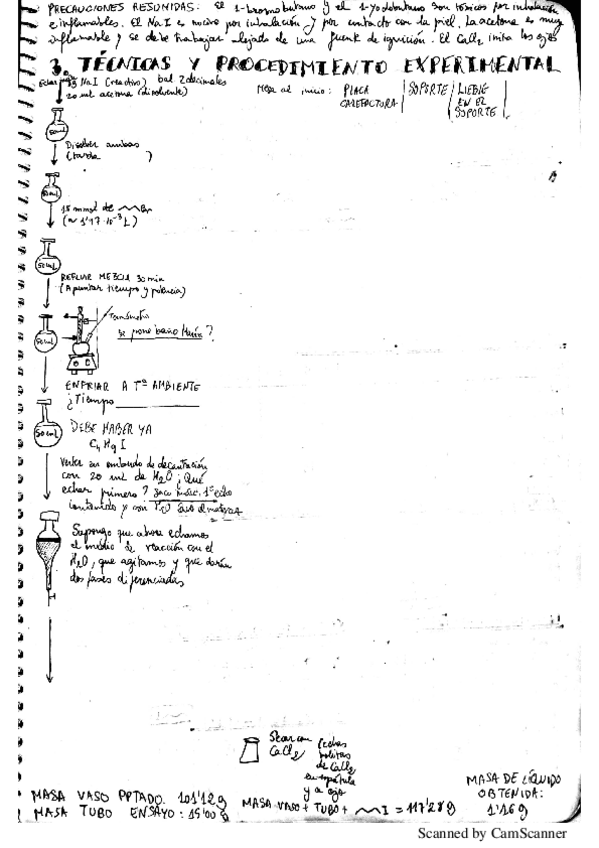 PRECAUCIONES RESUMIDAS: El 1-bromobutano y el 1-yodobutano son tóxicos por inhalación
e inflamables. El NaI es nocivo por inhalación y por contacto con la piel. La acetona es muy
inflamable y se debe trabajar alejado de una fuente de ignición. El CaCl2 irrita los ojos
3. TÉCNICAS Y PROCEDIMIENTO EXPERIMENTAL
Echar NaI (reactivo) bal 2 decimales
20 mL acetona (disolvente)
Mesa al inicio: PLACA CALEFACTORA | SOPORTE | LIEBIG EN EL SOPORTE |
50mL
Disolver ambos
(tarda )
50mL
15 mmol de Br
(≈ 1'17·10-3 L)
50mL
REFLUIR MEZCLA 30 min
(Apuntar tiempo y potencia)
50mL
Termómetro
se pone baño María?
ENFRIAR A Tª AMBIENTE
¿Tiempo
50mL
DEBE HABER YA
C4H9I
Verter en embudo de decantación
con 20 mL de H2O ¿Qué
echar primero? 1º echo
contenido y con
Supongo que ahora echamos
el medio de reacción con el
H2O, que agitamos y que darán
dos fases diferenciadas
Secar con
CaCl2
(echar
bolitas
de CaCl2
en espátula
y a ojo
MASA VASO PPTADO: 101'12g
MASA TUBO ENSAYO: 15'00g
MASA VASO + TUBO + I = 117'28g
MASA DE LÍQUIDO
OBTENIDA:
1'16g
Scanned by CamScanner